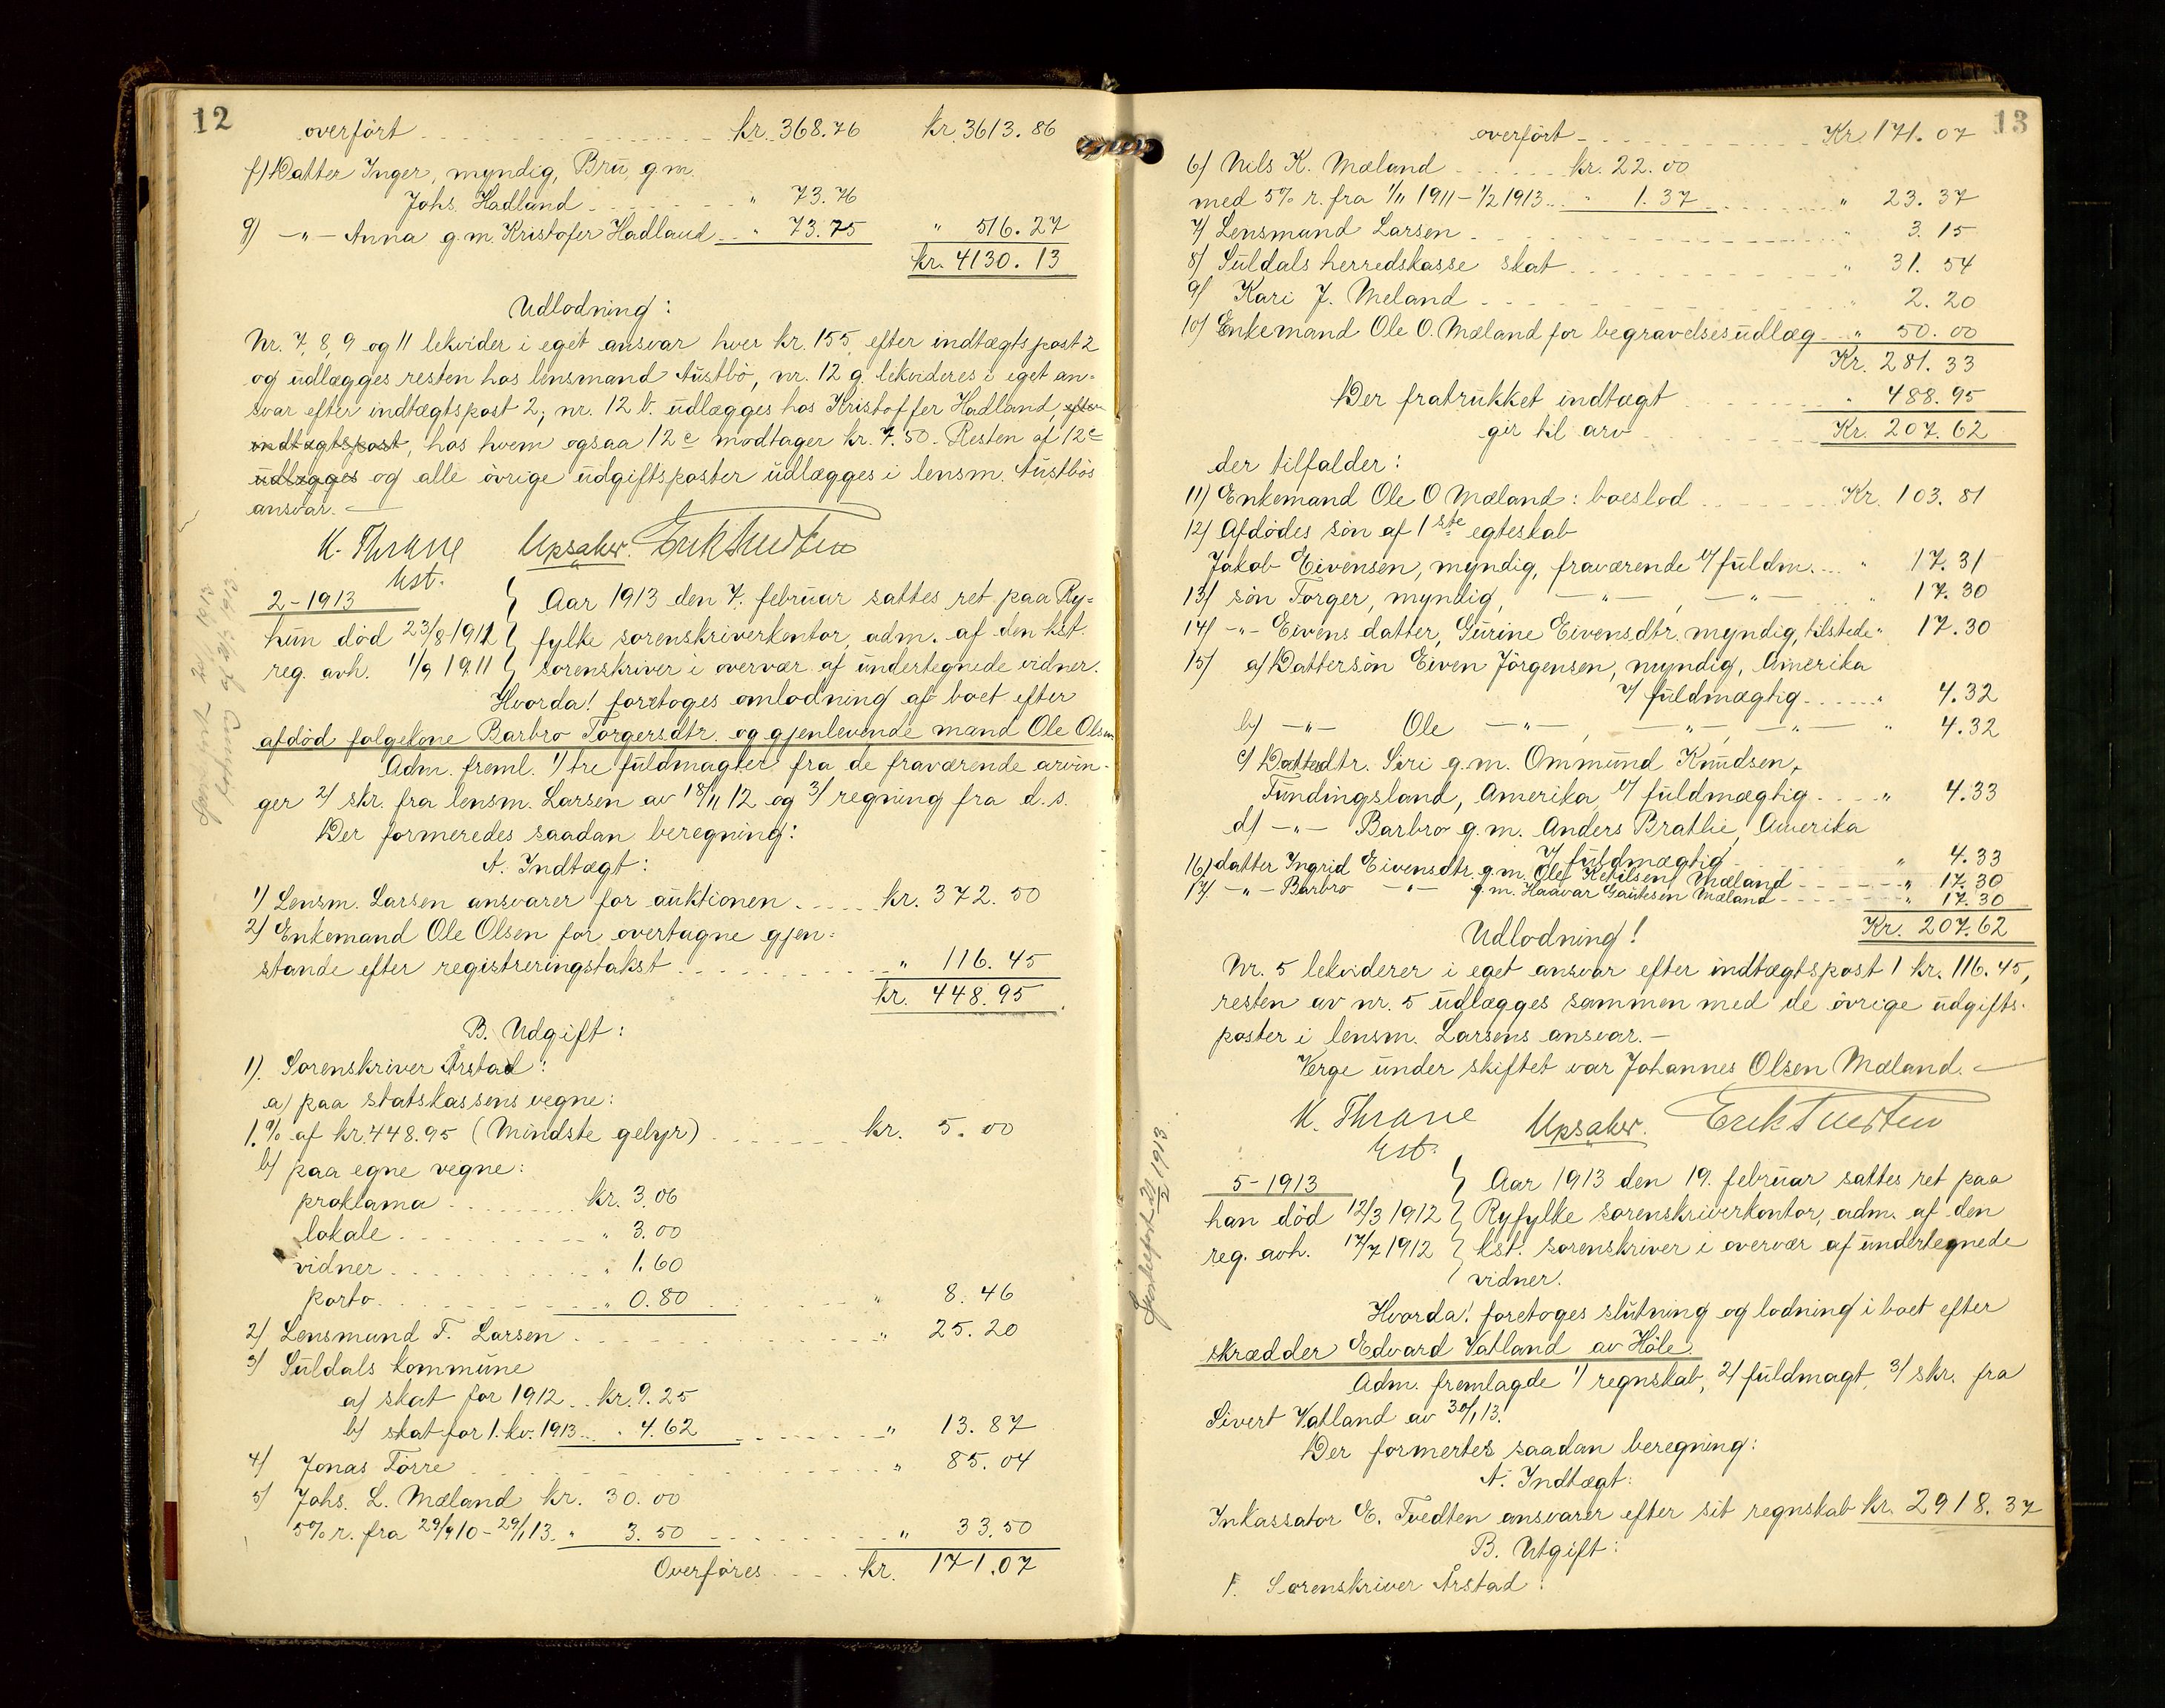 12
overført kr. 368.76 kr. 3613.86
f) Datter Inger, myndig, Brü, g.m.
Johs. Hadland " 73.76
g) -"- Anna g.m. Kristofer Hadland " 73.75 " 516.27
kr. 4130.13
Udlodning:
Nr. 7, 8, 9 og 11 lekvider i eget ansvar hver kr. 155, efter indtægtspost 2
og üdlægges resten hos lensmand Aüstbö, nr. 12 g. lekvideres i eget an=
svar efter indtægtspost 2; nr. 12 b. üdlægges hos Kristoffer Hadland, efter
indtægtspost, hos hvem ogsaa 12 c modtager kr. 7.50. Resten af 12 c
üdlægges og alle övrige üdgiftsposter üdlægges i lensm. Aüstbös
ansvar. —
K. Thrane Upsaker. Erik Tuesten
kst.
2 - 1913 Aar 1913 den 7. febrüar sattes ret paa Ry=
hün död 23/8 1911 fylke sorenskriverkontor, adm. af den kst.
reg. avh. 1/9 1911 sorenskriver i overvær af ündertegnede vidner.
Hvorda! foretoges omlodning af boet efter
afdöd folgekone Barbro Torgersdtr. og gjenlevende mand Ole Olsen
Adm. freml. 1) tre füldmagter fra de fraværende arvin-
ger 2) skr. fra lensm. Larsen av 18/11 12 og 3) regning fra d.s.
Der formeredes saadan beregning:
A. Indtægt:
1) Lensm. Larsen ansvarer for aüktionen kr. 372.50
2) Enkemand Ole Olsen for overtagne gjen=
stande efter registreringstakst " 116.45
kr. 448.95
B. Udgift:
1). Sorenskriver Årstad:
a) paa statskassens vegne:
1.% af kr. 448.95 (Mindste gebyr) kr. 5.00
b) paa egne vegne:
proklama kr. 3.06
lokale " 3.00
vidner " 1.60
porto " 0.80 " 8.46
2) Lensmand T. Larsen " 25.20
3) Süldals kommüne
a) skat for 1912 kr. 9.25
b) skat for 1. kv. 1913 " 4.62 " 13.87
4) Jonas Törre " 85.04
5) Johs. L. Mæland kr. 30.00
5% r. fra 29/9 10 - 29/1 13. " 3.50 " 33.50
Overføres kr. 171.07
13
overfört Kr. 171.07
6) Nils K. Mæland kr. 22.00
med 5% r. fra 1/11 1911 - 1/2 1913 " 1.37 " 23.37
7) Lensmand Larsen " 3.15
8) Süldals herredskasse skat " 31.54
9) Kari J. Meland " 2.20
10) Enkemand Ole O. Mæland for begravelsesüdlæg " 50.00
Kr. 281.33
Der fratrükket indtægt " 488.95
gir til arv Kr. 207.62
der tilfalder:
11) Enkemand Ole O Mæland: boeslod Kr. 103.81
12) Afdödes sön af 1ste egteskab
Jakob Eivensen, myndig, fraværende v/ füldm. " 17.31
13) sön Torger, myndig, -"-, -"- " 17.30
14) -"- Eivens datter, Gürine Eivensdtr. myndig, tilstede " 17.30
15) a) Dattersön Eiven Jörgensen, myndig, Amerika
v/ füldmægtig " 4.32
b) -"- Ole -"-, -"-, -"- " 4.32
c) Datterdtr. Siri g.m. Ommünd Knüdsen,
Tündingsland, Amerika v/ füldmægtig " 4.33
d) -"- Barbro g.m. Anders Brathe, Amerika
v/ füldmægtig " 4.33
16) datter Ingrid Eivensdtr. g.m. Olef Ketilsen Mæland " 17.30
17) -"- Barbro -"- g.m. Haavar Gaütesen Mæland " 17.30
Kr. 207.62
Udlodning!
Nr. 5 lekviderer i eget ansvar efter indtægtspost 1 kr. 116.45,
resten av nr. 5 üdlægges sammen med de övrige üdgifts-
poster i lensm. Larsens ansvar. —
Verge ünder skiftet var Johannes Olsen Mæland. —
K. Thrane Upsaker. Erik Tuesten
kst.
5 - 1913 Aar 1913 den 19. febrüar sattes ret paa
han död 12/3 1912 Ryfylke sorenskriverkontor, adm. af den
reg. avh. 17/7 1912 kst. sorenskriver i overvær af ündertegnede
vidner.
Hvorda! foretoges slütning og lodning i boet efter
skrædder Edvard Vatland av Höle.
Adm. fremlagde 1) regnskab, 2) füldmagt, 3) skr. fra
Sivert Vatland av 30/1 13.
Der formertes saadan beregning:
A. Indtægt:
Inkassator E. Tvedten ansvarer efter sit regnskab kr. 2918.37
B. Utgift:
1. Sorenskriver Årstad: